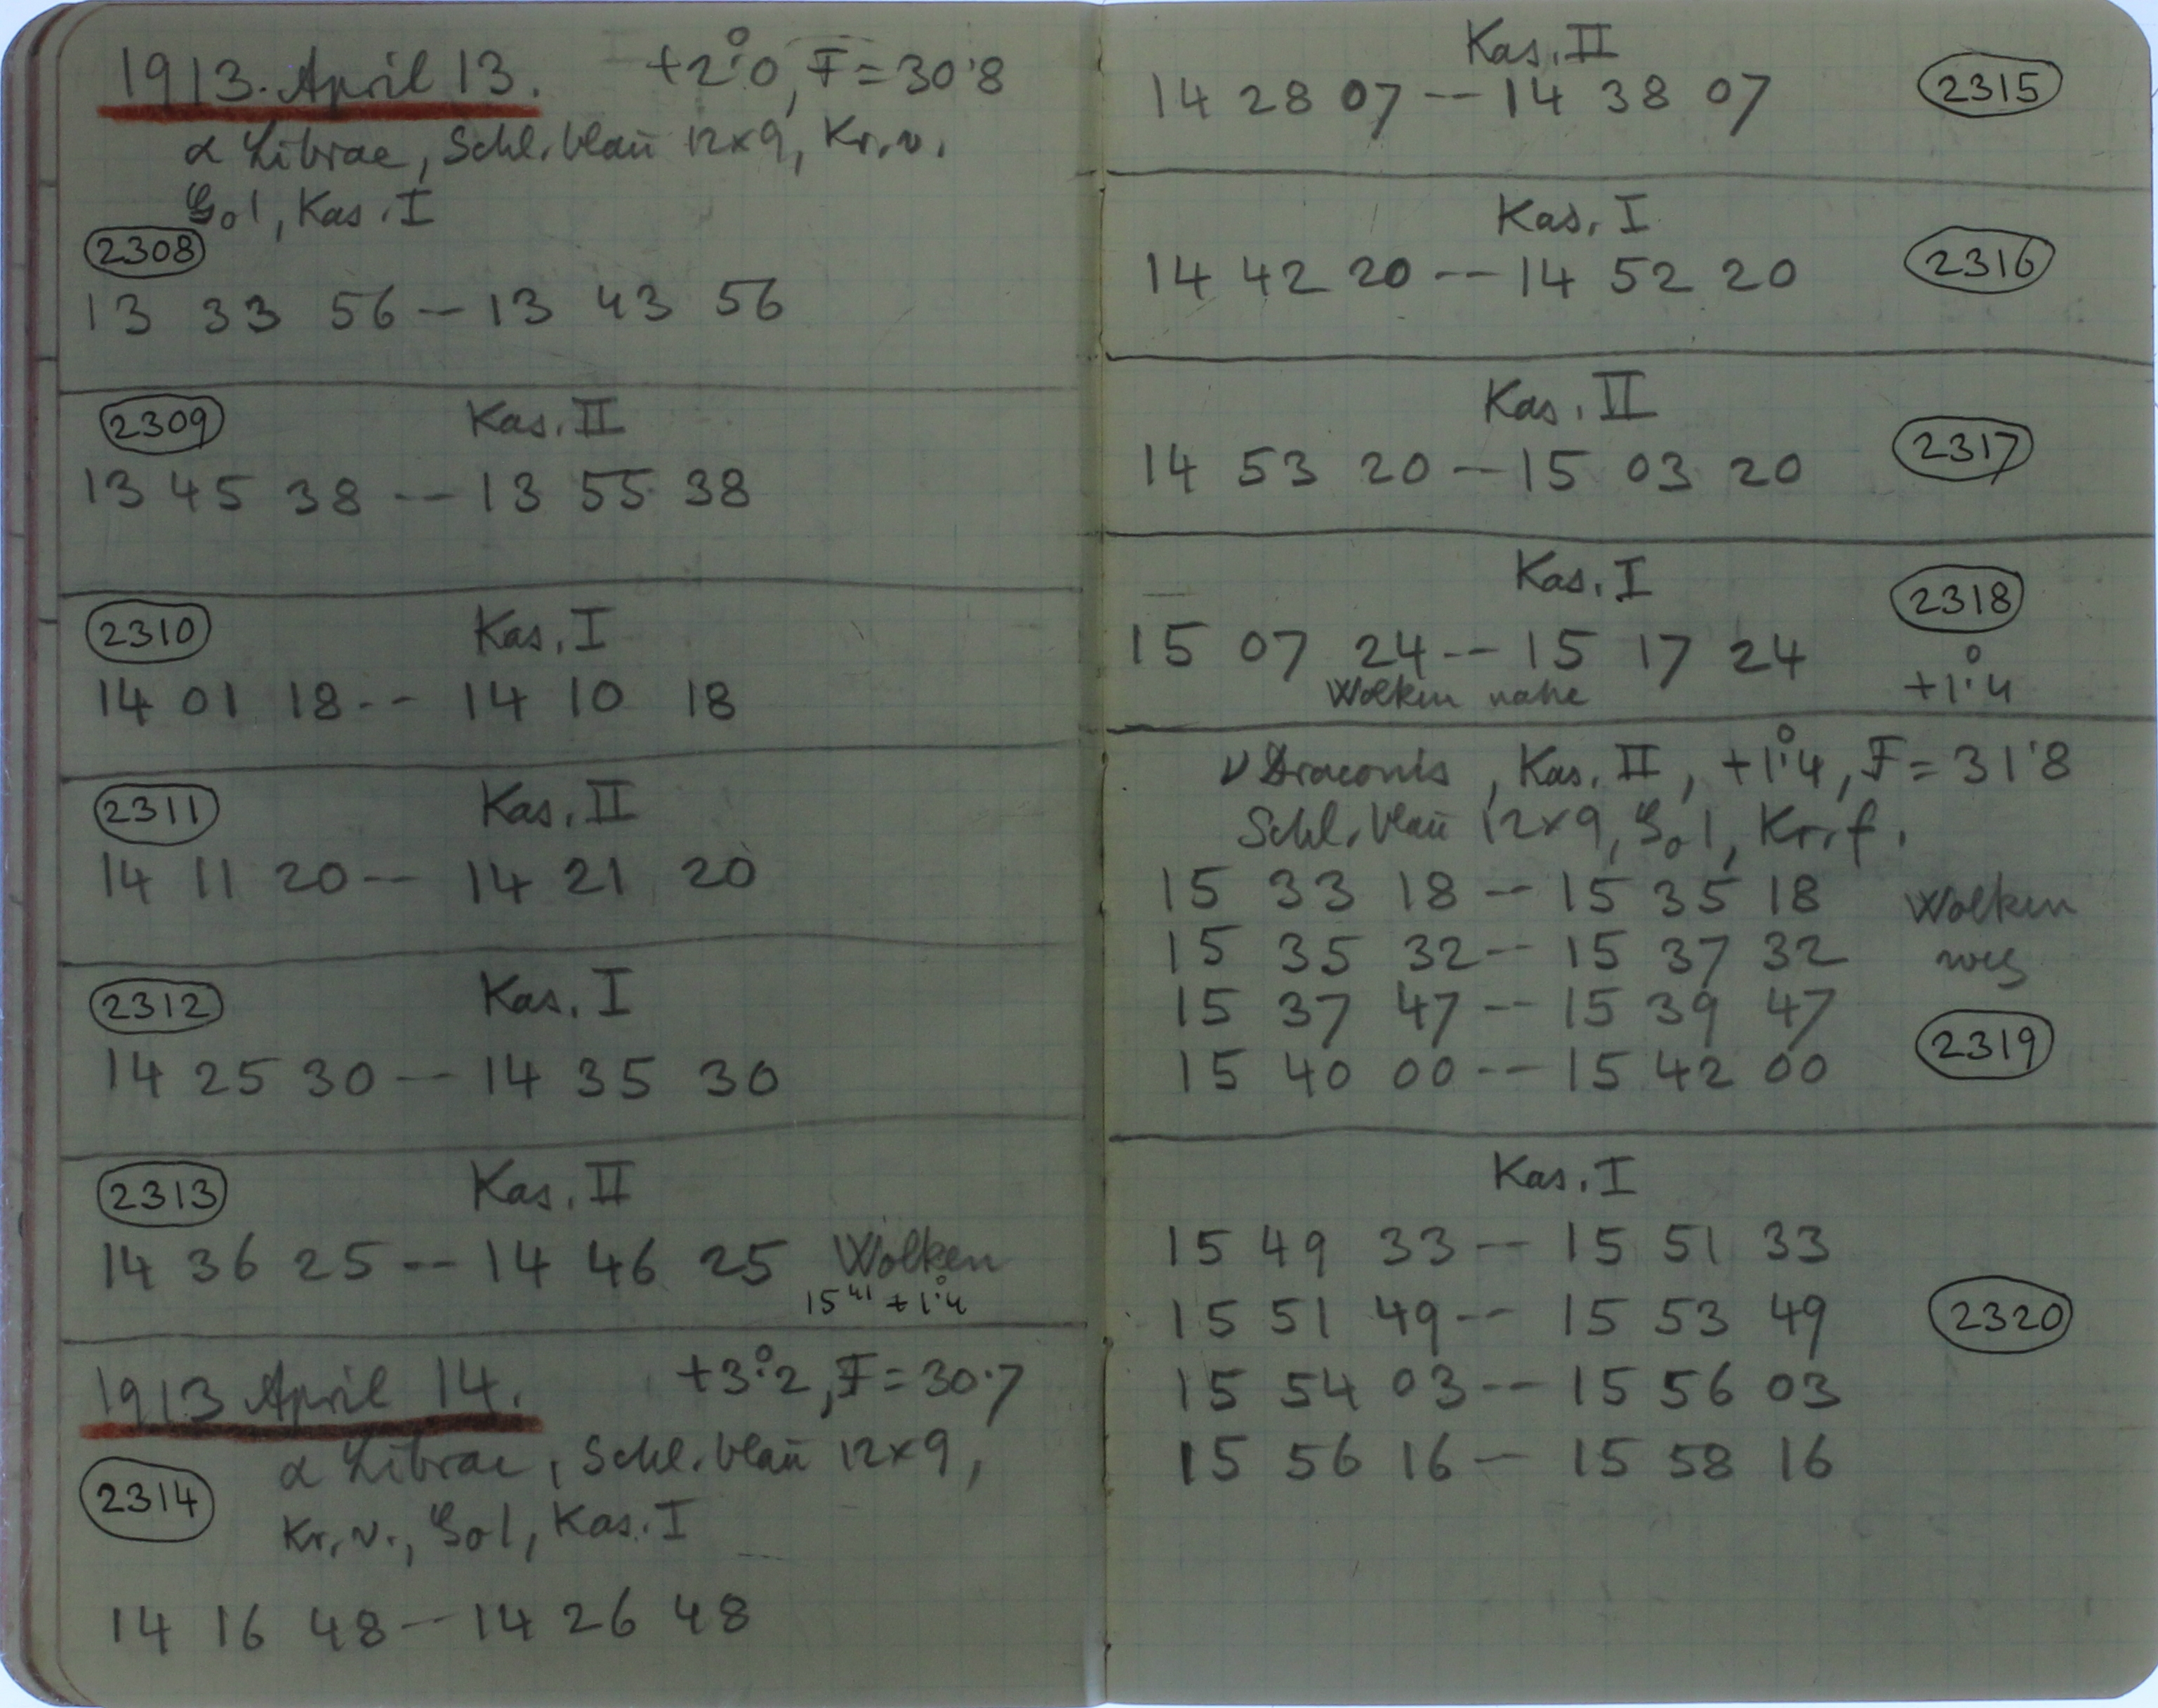 1913. April 13. +2°.0, F = 30.8
α Librae, Schl. blau 12×9, Kr. v.
Gol, Kas. I
2308
13 33 56 – 13 43 56
2309 Kas. II
13 45 38 -- 13 55 38
2310 Kas. I
14 01 18 -- 14 10 18
2311 Kas. II
14 11 20 -- 14 21 20
2312 Kas. I
14 25 30 -- 14 35 30
2313 Kas. II
14 36 25 -- 14 46 25 Wolken
15 41 +1°.4
1913 April 14. +3°.2, F = 30.7
α Librae, Schl. blau 12×9,
2314
Kr. v., Gol, Kas. I
14 16 48 -- 14 26 48
Kas. II
14 28 07 -- 14 38 07 2315
Kas. I
14 42 20 -- 14 52 20 2316
Kas. II
14 53 20 -- 15 03 20 2317
Kas. I
2318
15 07 24 -- 15 17 24
Wolken nahe +1°.4
ν Draconis, Kas. II, +1°.4, F = 31.8
Schl. blau 12×9, Gol, Kr. f.
15 33 18 -- 15 35 18 Wolken
15 35 32 -- 15 37 32 weg
15 37 47 -- 15 39 47
15 40 00 -- 15 42 00 2319
Kas. I
15 49 33 -- 15 51 33
15 51 49 -- 15 53 49 2320
15 54 03 -- 15 56 03
15 56 16 -- 15 58 16